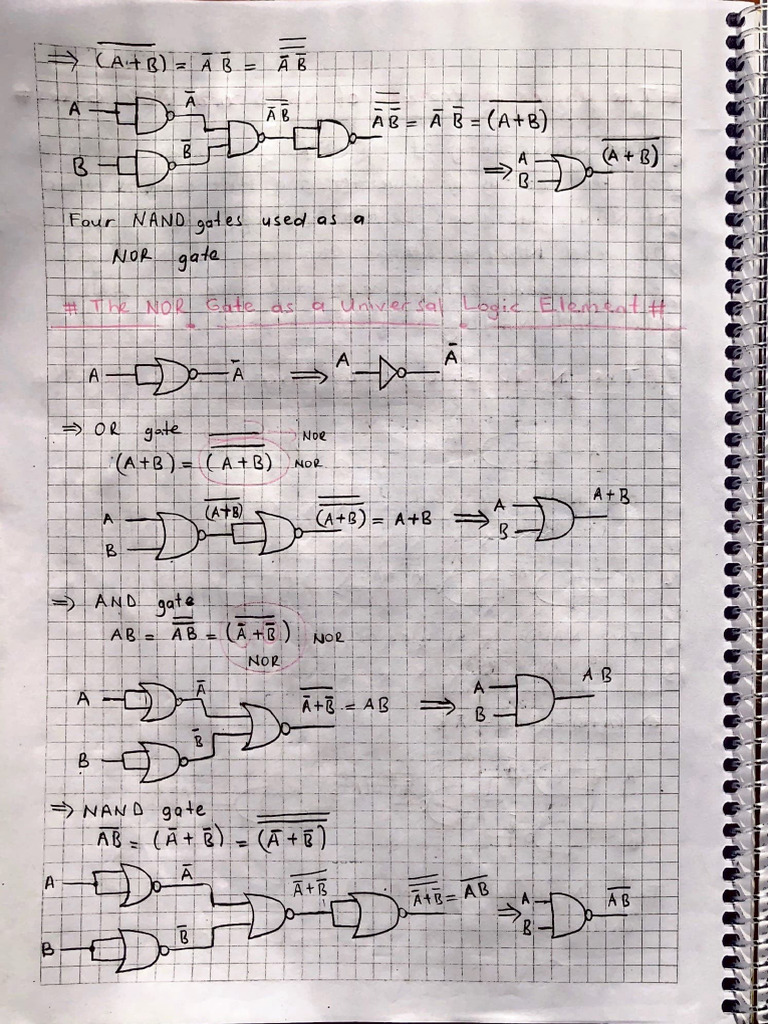 ⇒ $\overline{(A+B)} = \bar{A}\,\bar{B} = \overline{\overline{\bar{A}\,\bar{B}}}$
A $\bar{A}$ $\overline{\bar{A}\,\bar{B}}$ $\overline{\overline{\bar{A}\,\bar{B}}} = \bar{A}\,\bar{B} = \overline{(A+B)}$
B $\bar{B}$ ⇒ A B $\overline{(A+B)}$
Four NAND gates used as a
NOR gate
# The NOR Gate as a Universal Logic Element #
A $\bar{A}$ ⇒ A $\bar{A}$
⇒ OR gate NOR
$(A+B) = \overline{\overline{(A+B)}}$ NOR
A B $\overline{(A+B)}$ $\overline{\overline{(A+B)}} = A+B$ ⇒ A B A+B
⇒ AND gate
$AB = \overline{\overline{AB}} = \overline{(\bar{A}+\bar{B})}$ NOR
NOR
A $\bar{A}$ $\overline{\bar{A}+\bar{B}} = AB$ ⇒ A B AB
B $\bar{B}$
⇒ NAND gate
$\overline{AB} = (\bar{A}+\bar{B}) = \overline{\overline{(\bar{A}+\bar{B})}}$
A $\bar{A}$ $\overline{\bar{A}+\bar{B}}$ $\overline{\overline{\bar{A}+\bar{B}}} = \overline{AB}$ ⇒ A B $\overline{AB}$
B $\bar{B}$